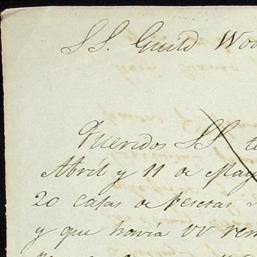 SS. Guild Woo
Queridos SS. te
Abril y 11 de May
20 cajas de pesetas
y que havia VV rem